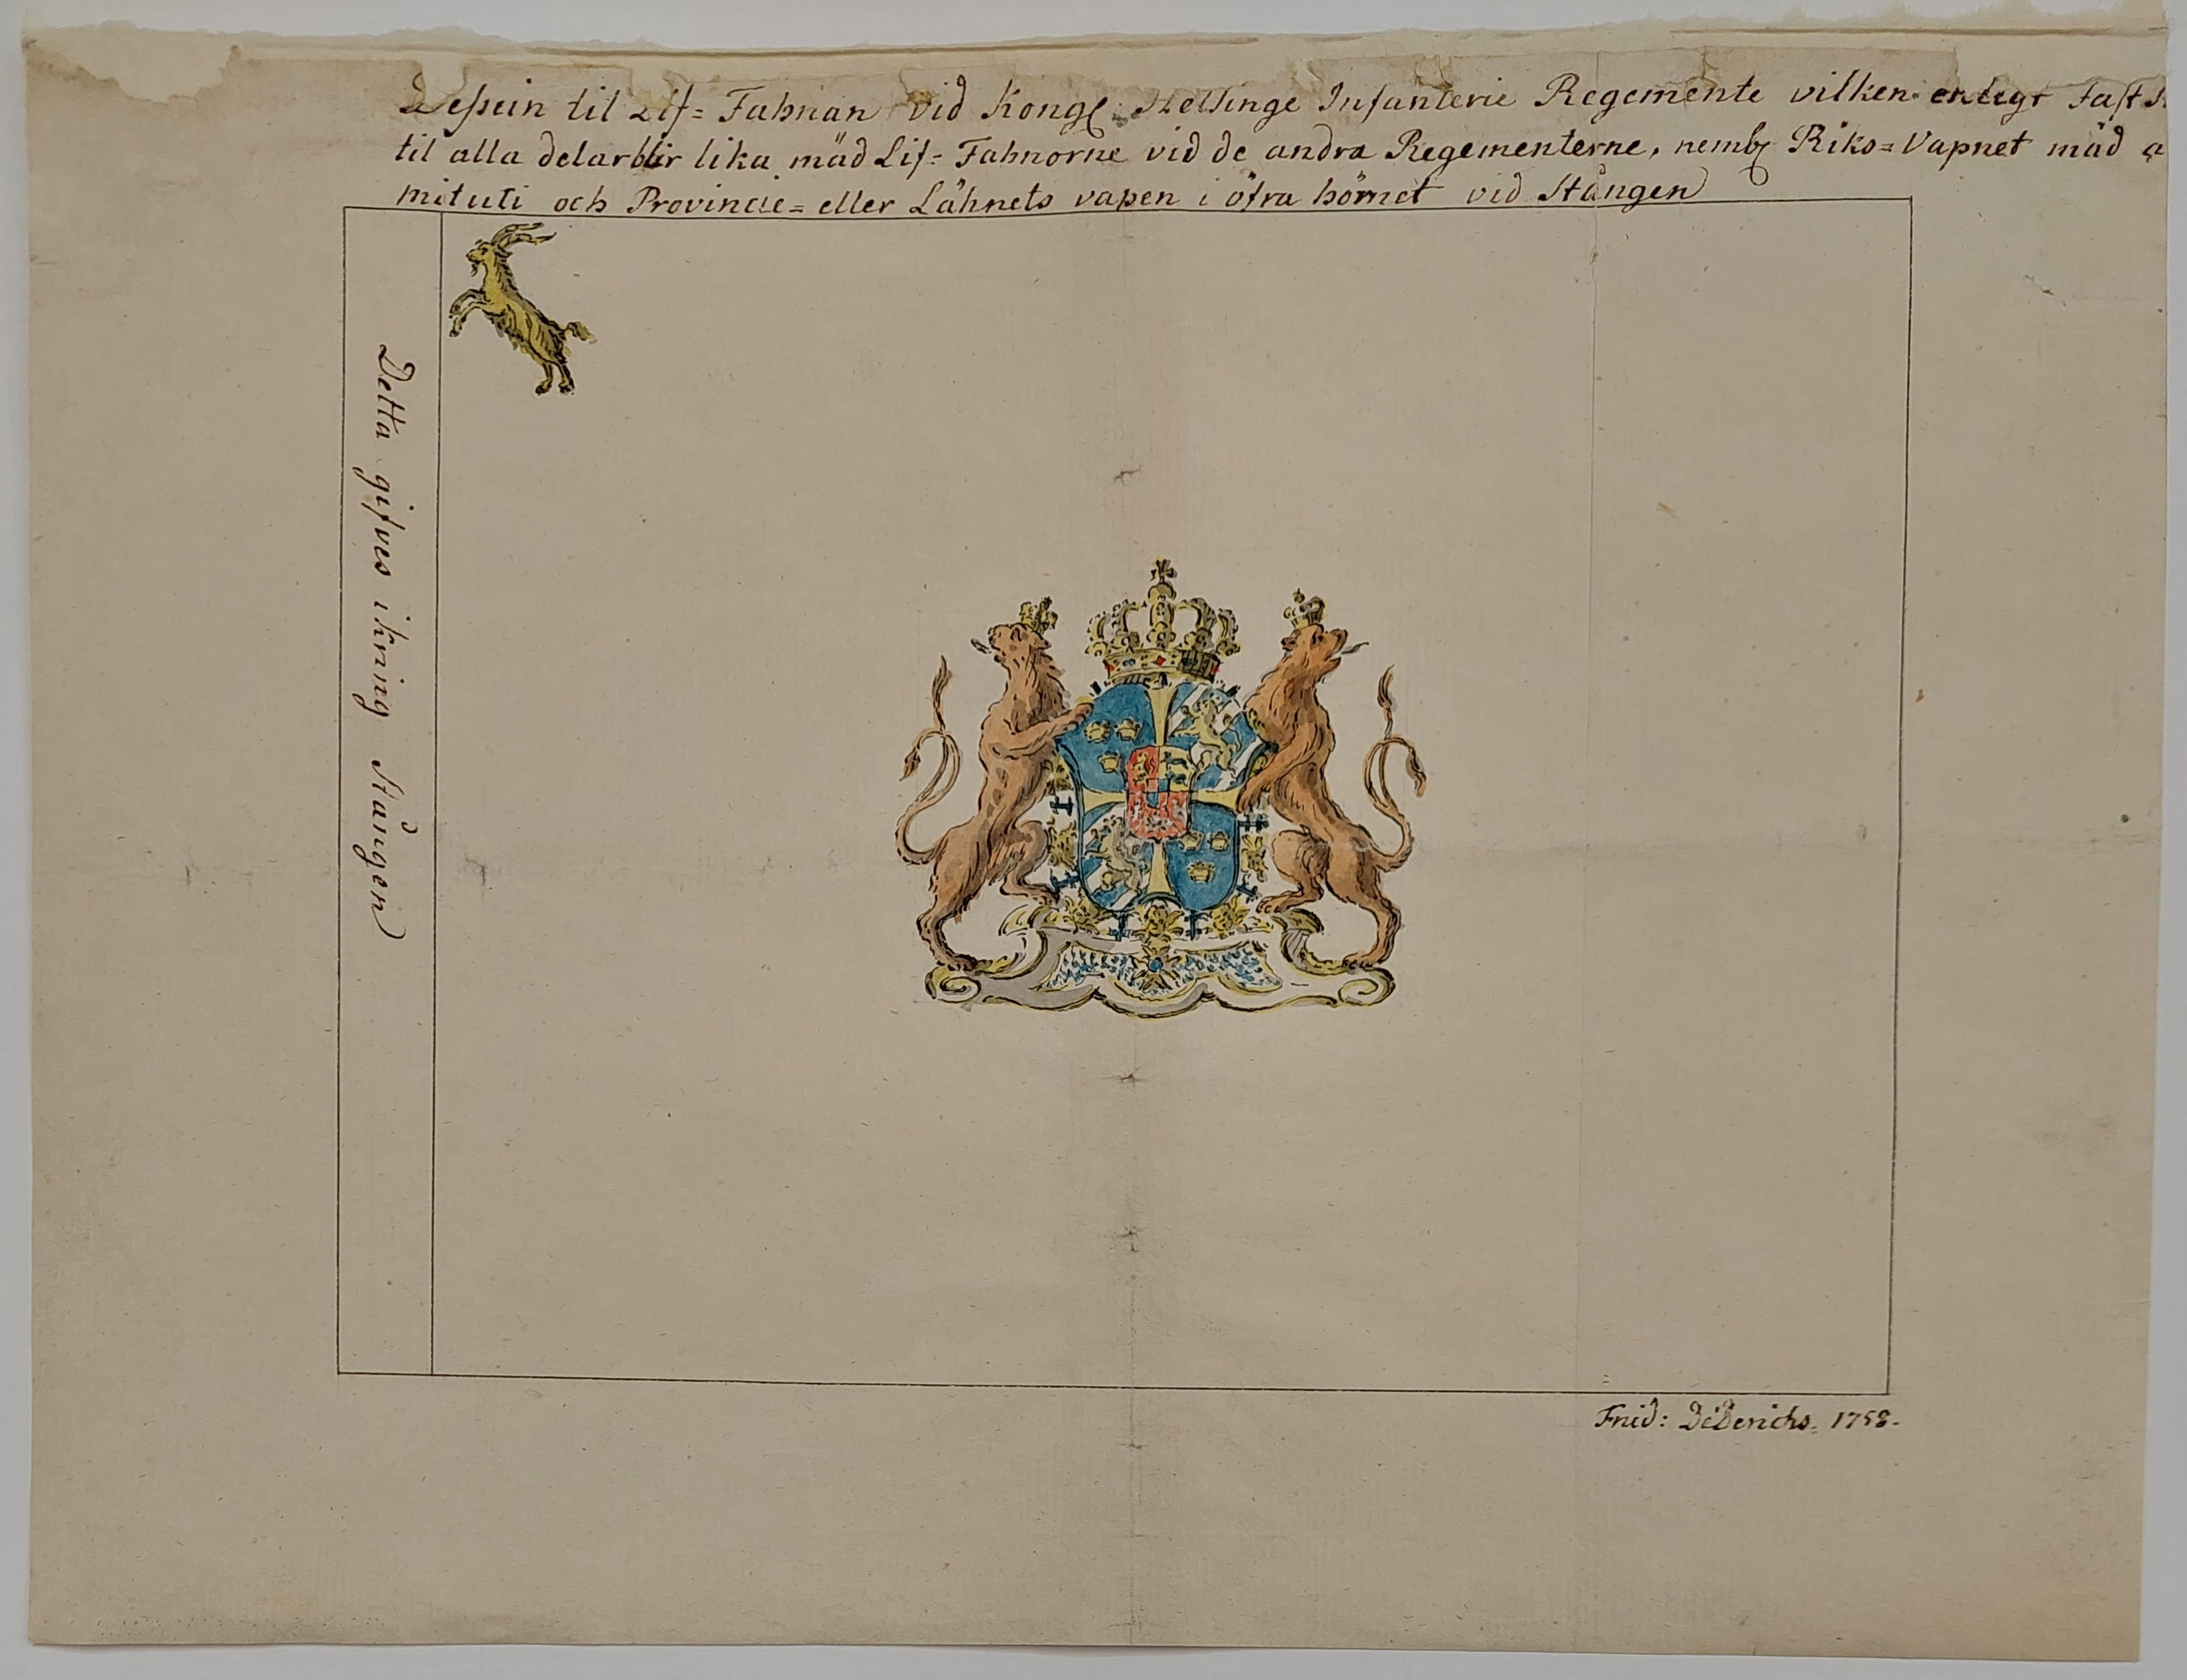 Dessein til Lif= Fahnan vid Kongl: Helsinge Infanterie Regemente vilken enligt fast
til alla delar blir lika mäd Lif= Fahnorne vid de andra Regementerne, nembl Riks=Vapnet mäd a
mituti och Provincie= eller Lähnets vapen i öfra hörnet vid Stången
Detta gifves ikring Stången
Frid: Diderichs. 1758.